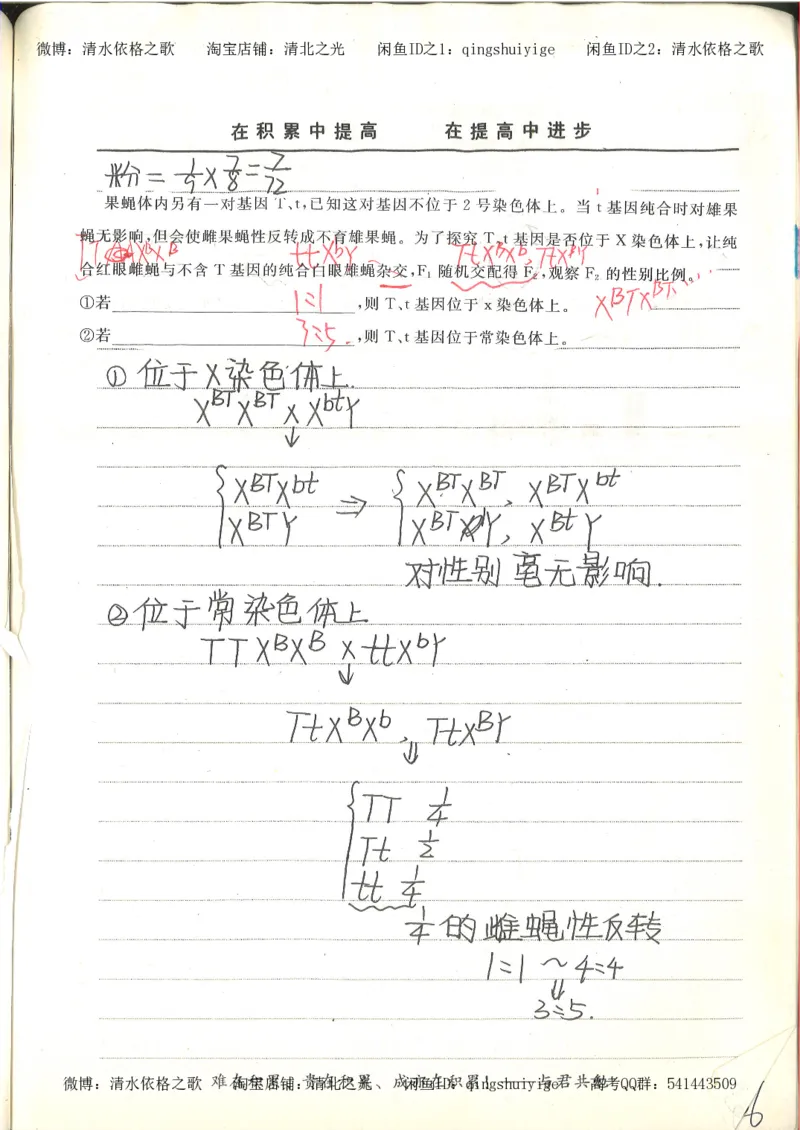 微博：清水依格之歌 淘宝店铺：清北之光 闲鱼ID之1：qingshuiyige 闲鱼ID之2：清水依格之歌
在积累中提高 在提高中进步
粉 = 1/9 × 7/8 = 7/72
果蝇体内另有一对基因 T、t,已知这对基因不位于 2 号染色体上。当 t 基因纯合时对雄果
蝇无影响,但会使雌果蝇性反转成不育雄果蝇。为了探究 T、t 基因是否位于 X 染色体上,让纯
ttXbY TtXBXb,TtXBY
合红眼雌蝇与不含 T 基因的纯合白眼雄蝇杂交,F₁ 随机交配得 F₂,观察 F₂ 的性别比例。
①若 1:1 ,则 T、t 基因位于 x 染色体上。 XBTXBT
②若 3:5. ,则 T、t 基因位于常染色体上。
① 位于X染色体上.
XBTXBT × XbtY
↓
XBTXbt ⇒ XBTXBT、XBTXbt
XBTY XBTY、XBtY
对性别毫无影响.
② 位于常染色体上
TTXBXB × ttXbY
↓
TtXBXb、TtXBY
⇓
TT 1/4
Tt 1/2
tt 1/4
1/4的雌蝇性反转
1:1 ~ 4:4
⇓
3:5.
微博：清水依格之歌 淘宝店铺：清北之光、 闲鱼ID：qingshuiyige 高考QQ群：541443509
6